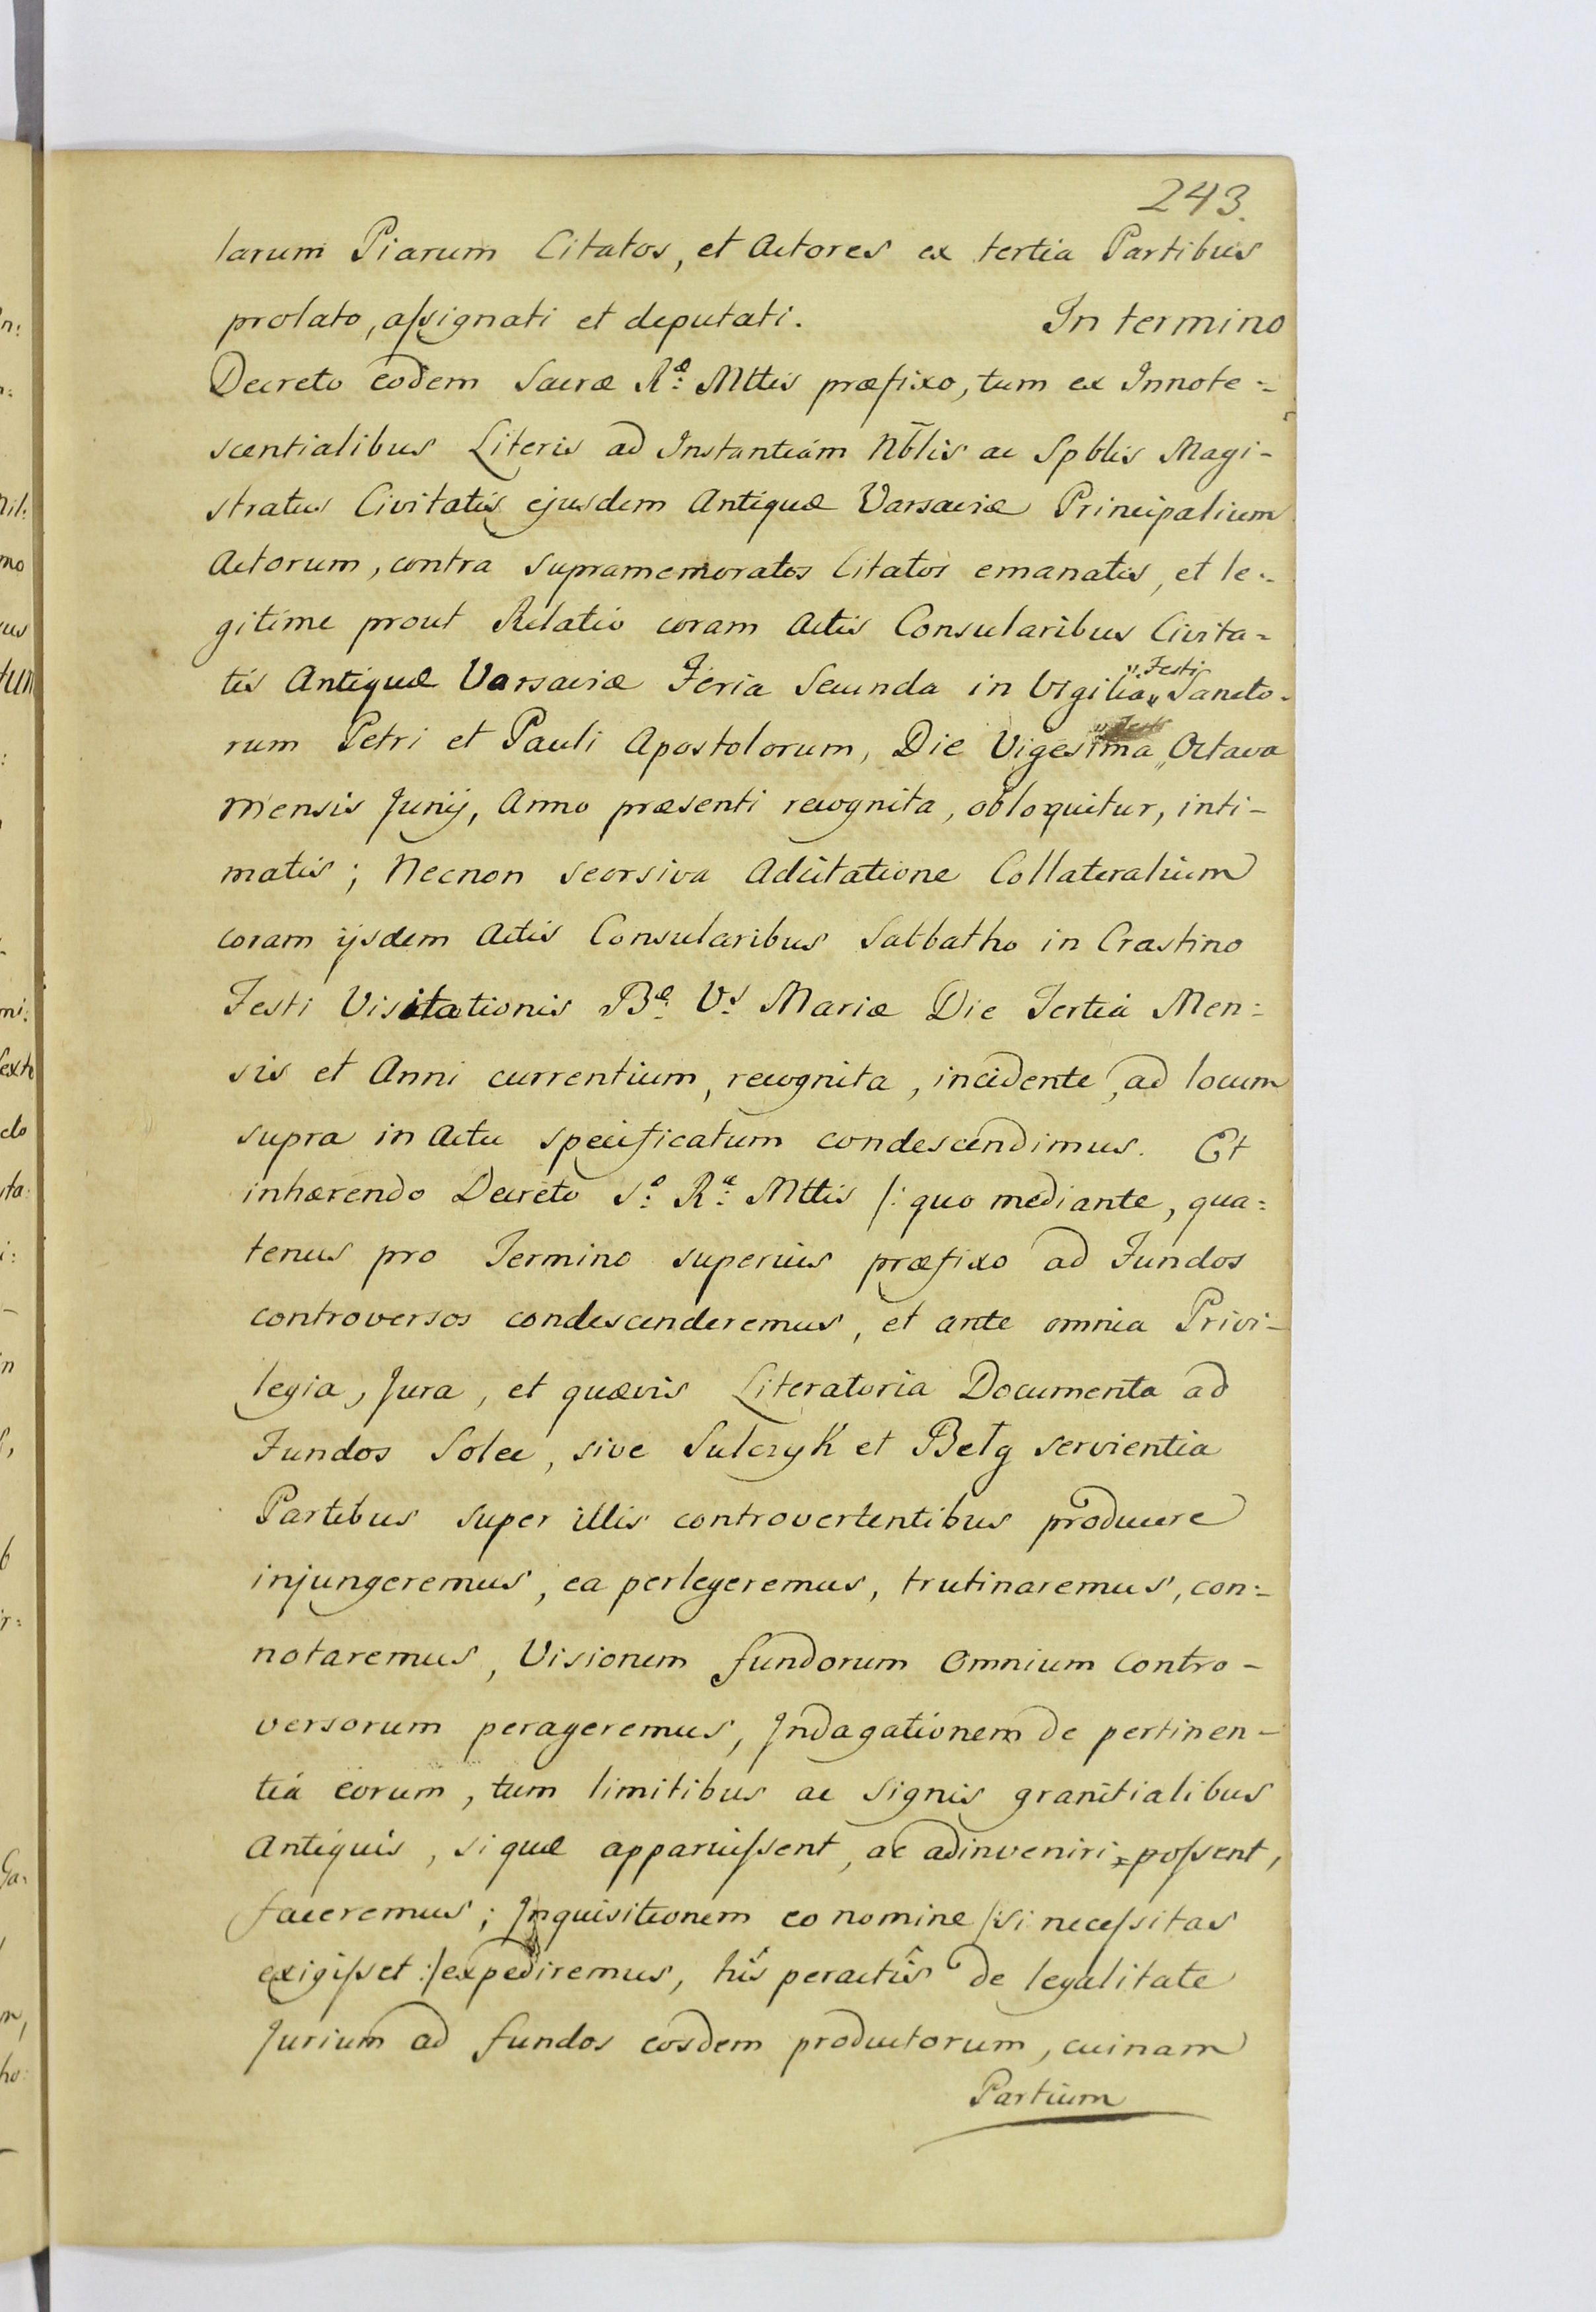 243.
larum Piarum Citatos, et Actores ex tertia Partibus
prolato, assignati et deputati. In termino
Decreto eodem Sacræ Ræ: Mttis præfixo, tum ex Innote=
scentialibus Literis ad Instantiam Nblis ac Spblis Magi-
stratus Civitatis ejusdem Antiquæ Varsaviæ Principalium
Actorum, contra supramemoratos Citatos emanatis, et le=
gitime prout Relatio coram Actis Consularibus Civita=
tis Antiquæ Varsaviæ Feria Secunda in Vigilia "Festi" Sancto-
rum Petri et Pauli Apostolorum, Die Vigesima Octava
Mensis Junij, Anno præsenti recognita, obloquitur, inti-
matis; Necnon seorsiva Adcitatione Collateralium
coram ijsdem Actis Consularibus Sabbatho in Crastino
Festi Visitationis Bæ: Vs: Mariæ Die Tertia Men=
sis et Anni currentium, recognita, incidente, ad locum
supra in Actu specificatum condescendimus. Et
inhærendo Decreto So: Ræ: Mttis /: quo mediante, qua=
tenus pro Termino superius præfixo ad Fundos
controversos condescenderemus, et ante omnia Privi-
legia, Jura, et quævis Literatoria Documenta ad
Fundos Solec, sive Sulczyk et Bełg servientia
Partibus super illis controvertentibus producere
injungeremus, ea perlegeremus, trutinaremus, con=
notaremus, Visionem fundorum Omnium Contro-
versorum perageremus, Indagationem de pertinen-
tiá eorum, tum limitibus ac signis granitialibus
Antiquis, si quæ apparuissent, ac adinveniri possent,
faceremus; Inquisitionem eo nomine /: si necessitas
exigisset :/ expediremus, hîs peractîs de legalitate
Jurium ad fundos eosdem productorum, cuinam
Partium